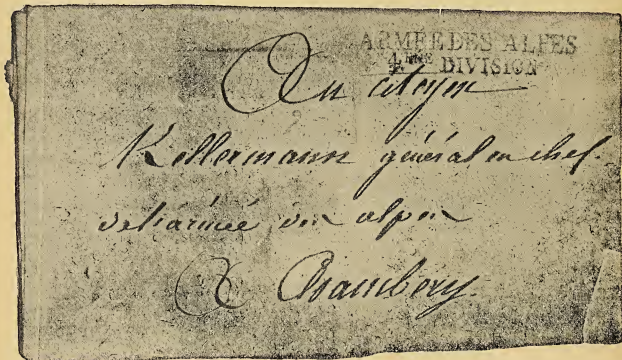 ARMÉE DES ALPES
4ME DIVISION
Au citoyen
Kellermann général en chef
de l'armée des alpes
A Chambery